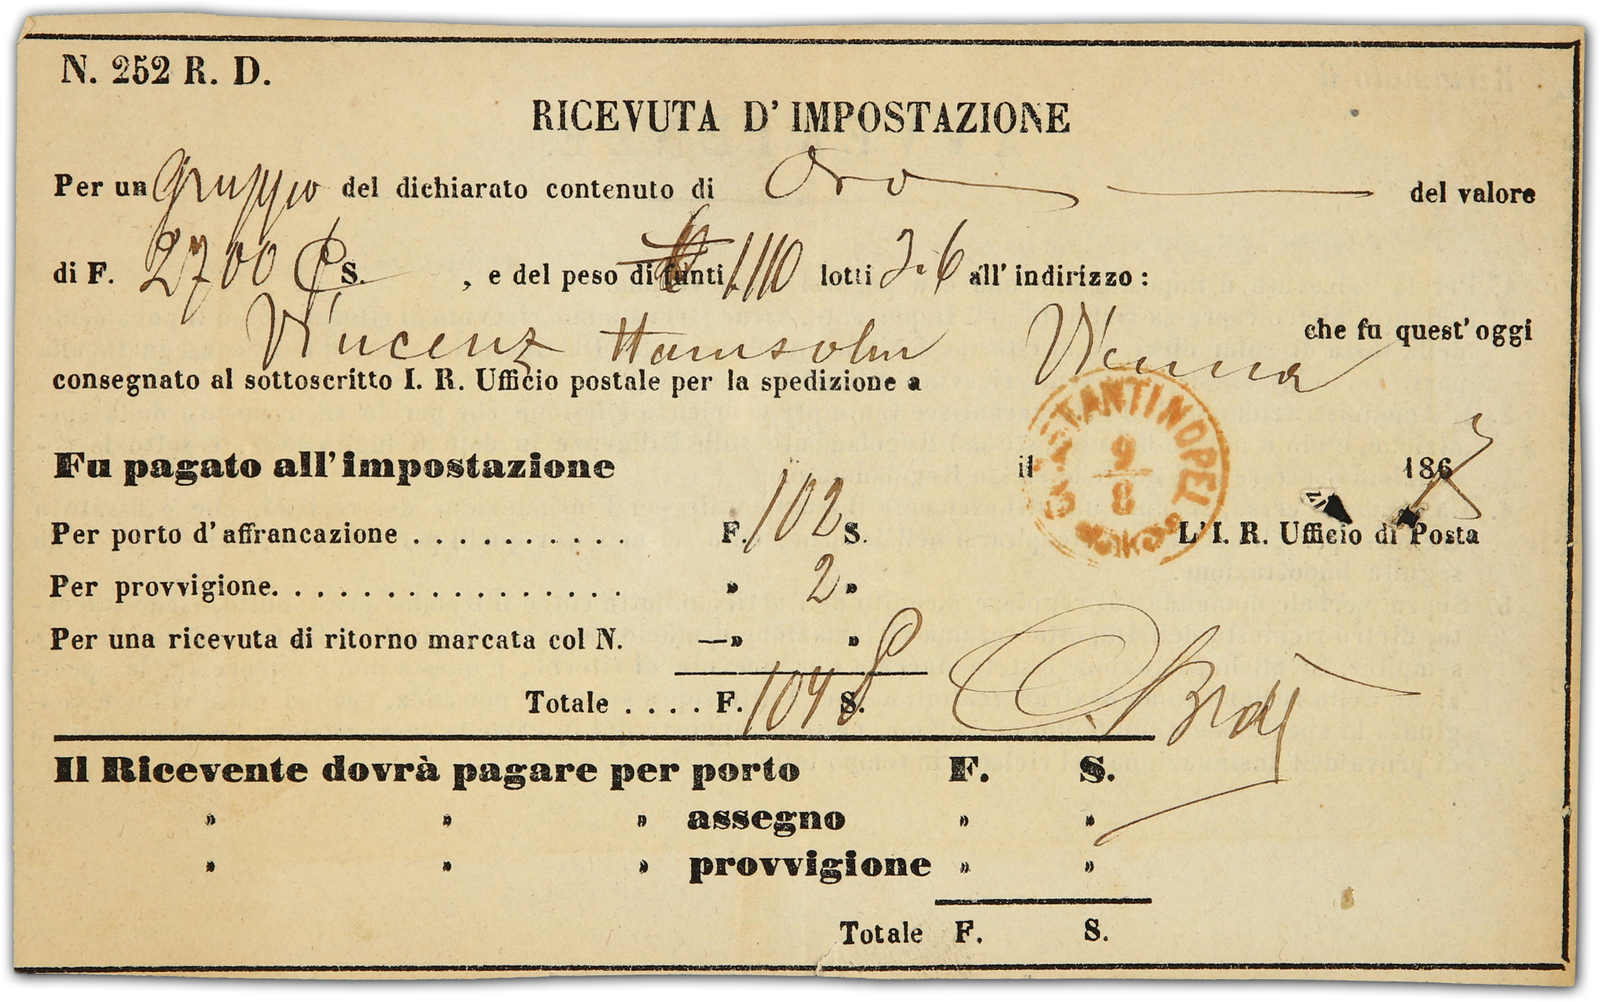 N. 252 R. D.
RICEVUTA D' IMPOSTAZIONE
Per un Gruppo del dichiarato contenuto di Oro del valore
di F. 2700 S. , e del peso di funti lotti all' indirizzo :
Vincenz Vienna che fu quest' oggi
consegnato al sottoscritto I. R. Ufficio postale per la spedizione a
Fu pagato all' impostazione il 1863
CONSTANTINOPEL
9
8
Per porto d' affrancazione . . . . . . . . . . F. 102 S. L' I. R. Ufficio di Posta
Per provvigione. . . . . . . . . . . . . . . . . " 2 "
Per una ricevuta di ritorno marcata col N. —" "
Totale . . . . F. 104 S.
Il Ricevente dovrà pagare per porto F. S.
" " " assegno " "
" " " provvigione " "
Totale F. S.